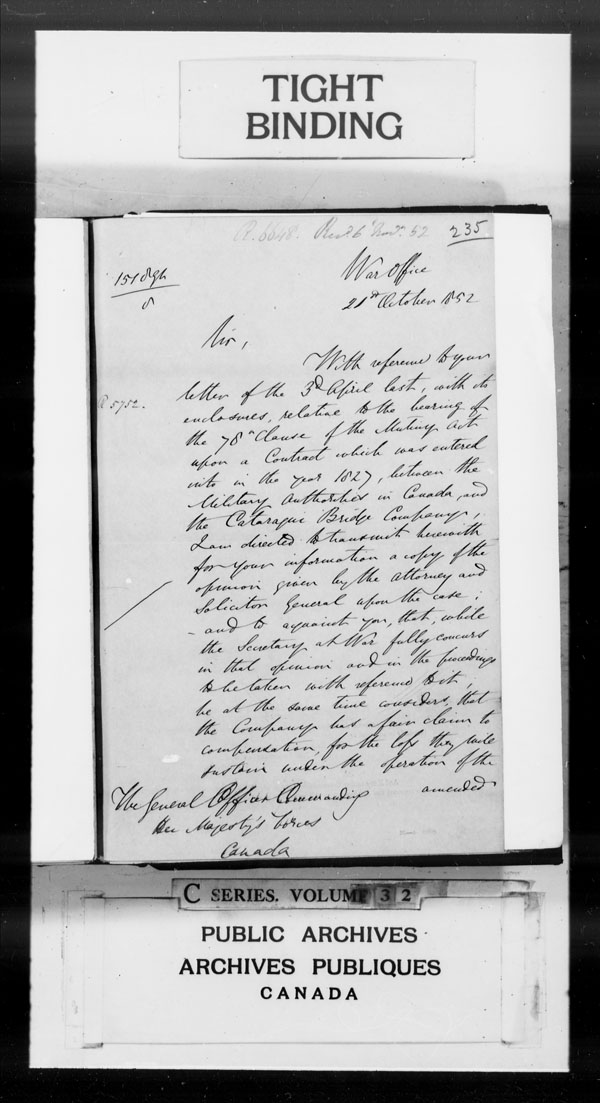 TIGHT
BINDING
R. 6648. Recd 6 Novr. 52
235
151
8
War Office
21st October 1852
Sir,
With reference to your
R 5752.
letter of the 3d April last, with its
enclosures, relative to the bearing of
the 78th Clause of the Mutiny Act
upon a Contract which was entered
into in the year 1827, between the
Military Authorities in Canada, and
the Cataraque Bridge Company,
I am directed to transmit herewith
for your information a copy of the
opinion given by the Attorney and
Solicitor General upon the case;
- and to acquaint you, that, while
the Secretary at War fully concurs
in that opinion and in the proceedings
to be taken with reference to it,
he at the same time considers, that
the Company has a fair claim to
compensation, for the loss they will
sustain under the operation of the
amended
The General Officer Commanding
Her Majesty's Forces
Canada
C SERIES. VOLUME 32
PUBLIC ARCHIVES
ARCHIVES PUBLIQUES
CANADA